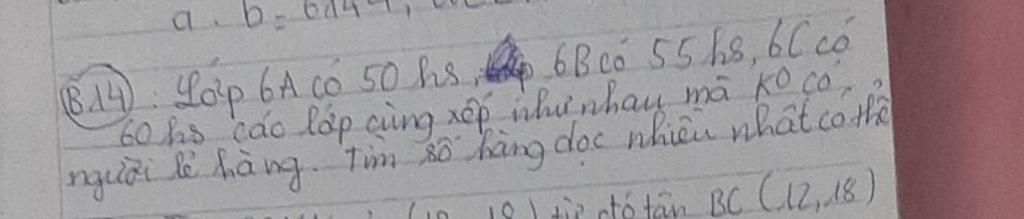 a. b =
B14: Lớp 6A có 50 hs, lớp 6B có 55 hs, 6C có
60 hs các lớp cùng xếp như nhau mà ko có
người lẻ hàng. Tìm số hàng dọc nhiều nhất có thể
tìm BC (12, 18)